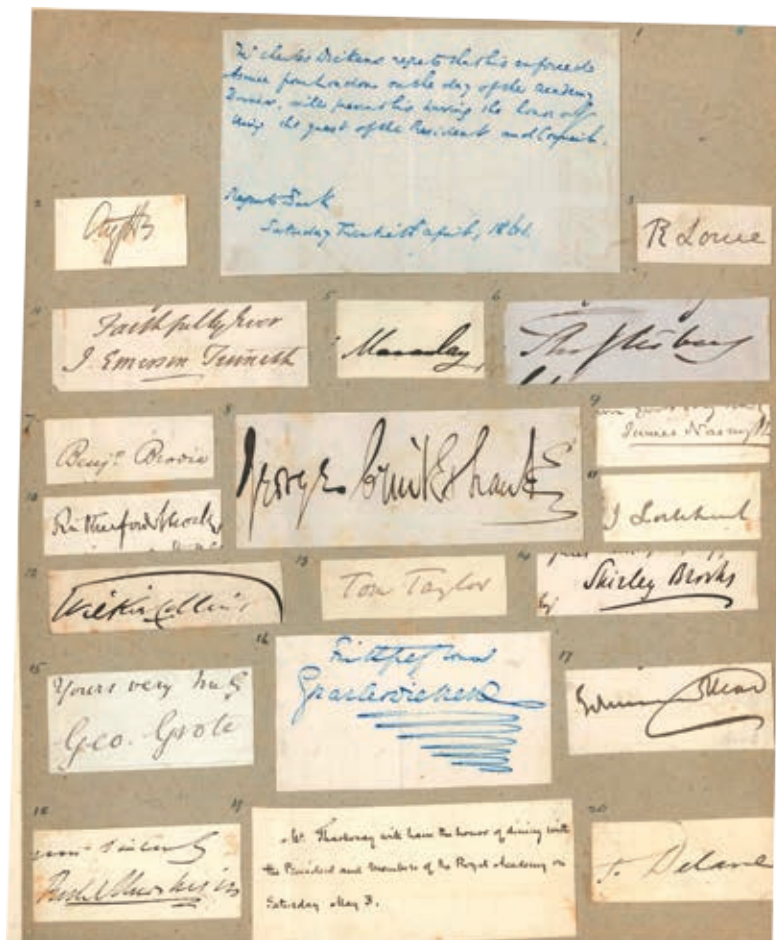 1
Mr Charles Dickens regrets that his enforced
absence from London on the day of the Academy
Dinner, will prevent his having the honor of
being the guest of the President and Council.
Regents Park
Saturday Twentieth April, 1861.
2
3
R Lowe
4
Faithfully Yours
J. Emerson Tennent
5
Macaulay
6
Shaftesbury
7
Benjn. Brodie
8
George Cruikshank
9
James Nasmyth
10
Rutherford Alcock
11
J Lockhart
12
Wilkie Collins
13
Tom Taylor
14
Shirley Brooks
15
Yours very truly
Geo. Grote
16
Faithfully Yours
Charles Dickens
17
18
yours sincerely
19
Mr. Thackeray will have the honor of dining with
the President and Members of the Royal Academy on
Saturday May 3.
20
J. Delane